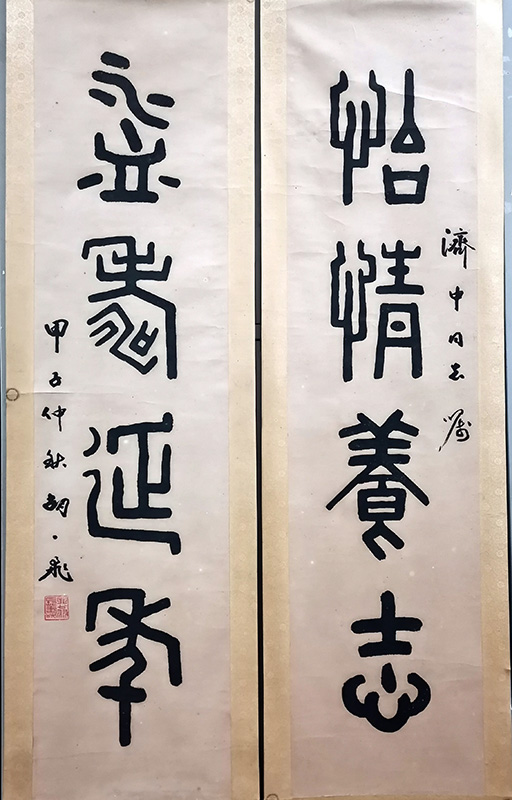 怡情養志
濟中同志囑
益壽延年
甲子仲秋胡一飛